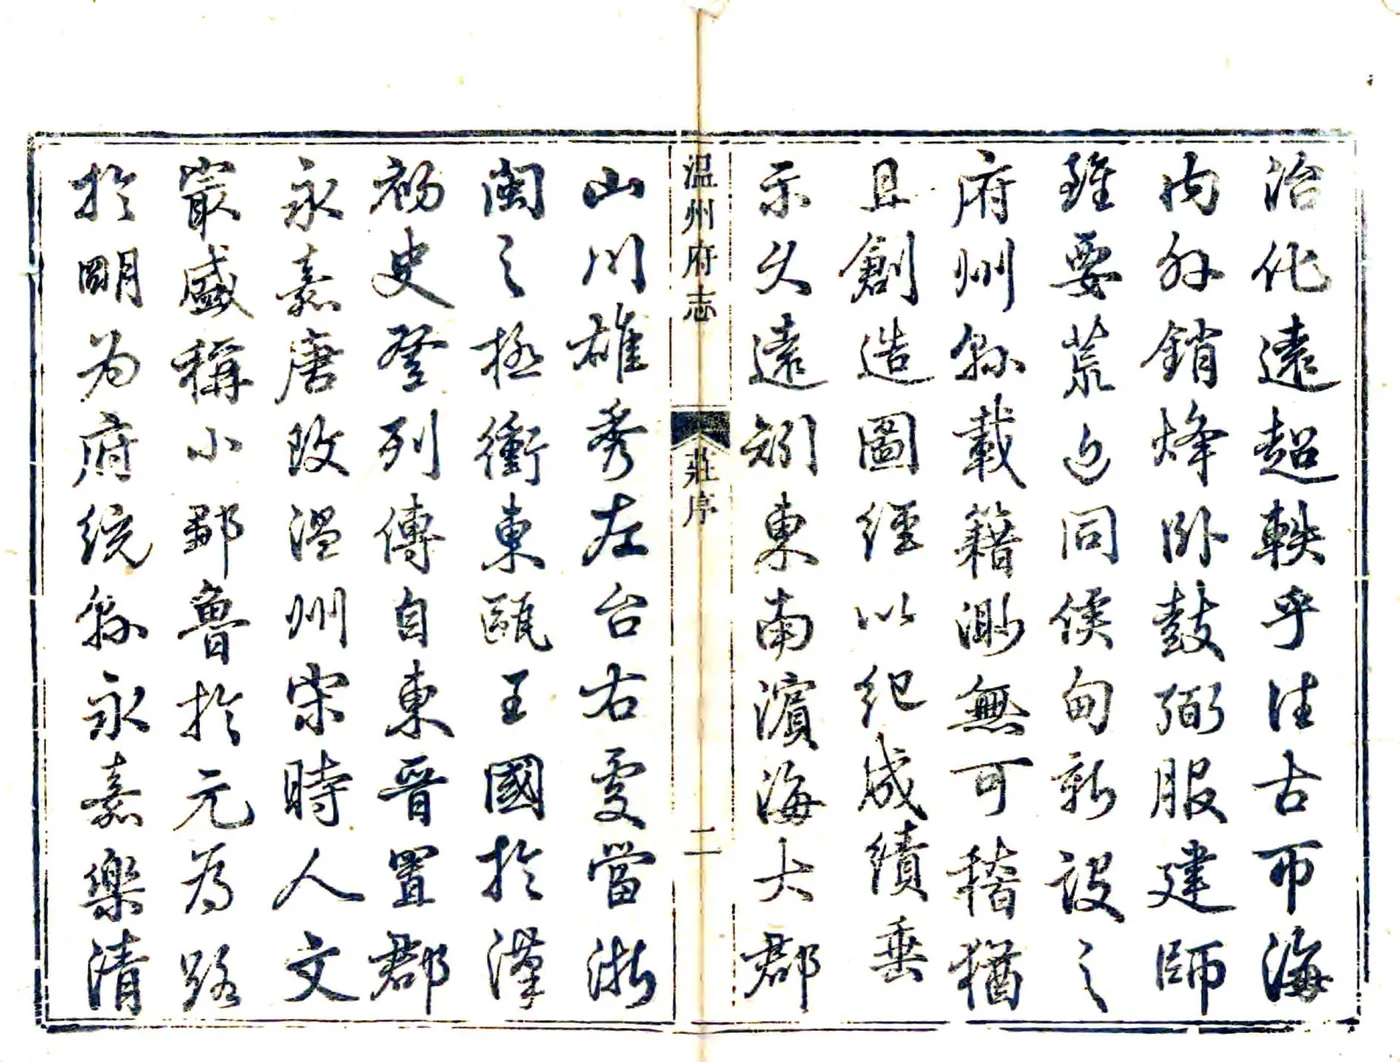 治化遠超軼乎往古而海
内外銷烽卧鼓弼服建師
雖要荒同侯甸新設之
府州縣載籍渺無可稽猶
且創造圖經以紀成績垂
示久遠矧東南濱海大郡
温州府志 莊序 二
山川雄秀左台右處當浙
閩之極衝東甌王國於漢
初史登列傳自東晉置郡
永嘉唐改温州宋時人文
最盛稱小鄒魯於元為路
於明为府統縣永嘉樂清